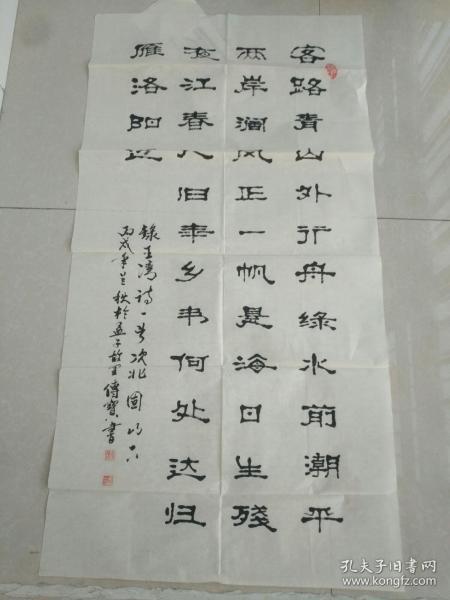 客路青山外行舟绿水前潮平
两岸澜风正一帆是海日生残
夜江春入旧年乡书何处达归
雁洛阳边
录王湾诗一首次北固山下
丙戌年兰秋於孟子故里傳寶書
孔夫子旧书网
www.kongfz.com